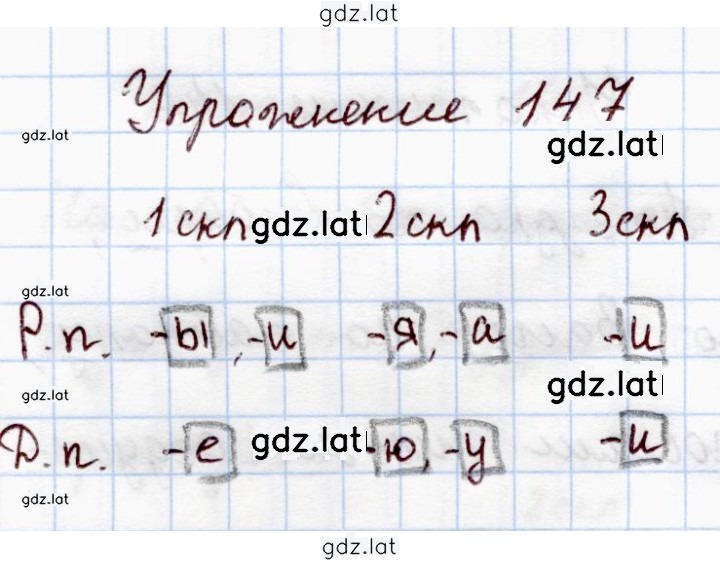 gdz.lat
Упражнение 147
gdz.lat
gdz.lat
1 скл gdz.lat 2 скл 3 скл
gdz.lat
Р. п. -ы, -и -я, -а -и
gdz.lat
gdz.lat
Д. п. -е gdz.lat -ю, -у -и
gdz.lat
gdz.lat